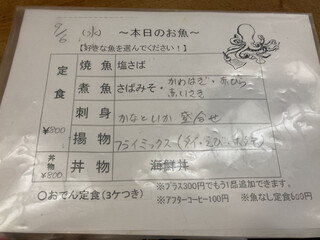 9/6 (水)
～本日のお魚～
【好きな魚を選んでください！】
定食 ¥800
焼魚 塩さば
煮魚 さばみそ・かわはぎ・赤むつ
あいさき
刺身 かなといか 盛合せ
揚物 フライミックス(タイ・エビ・ホッケ)
丼物 ¥800 丼物 海鮮丼
○おでん定食(3ケつき)
※プラス300円でもう1品追加できます。
※アフターコーヒー100円 ※魚なし定食600円